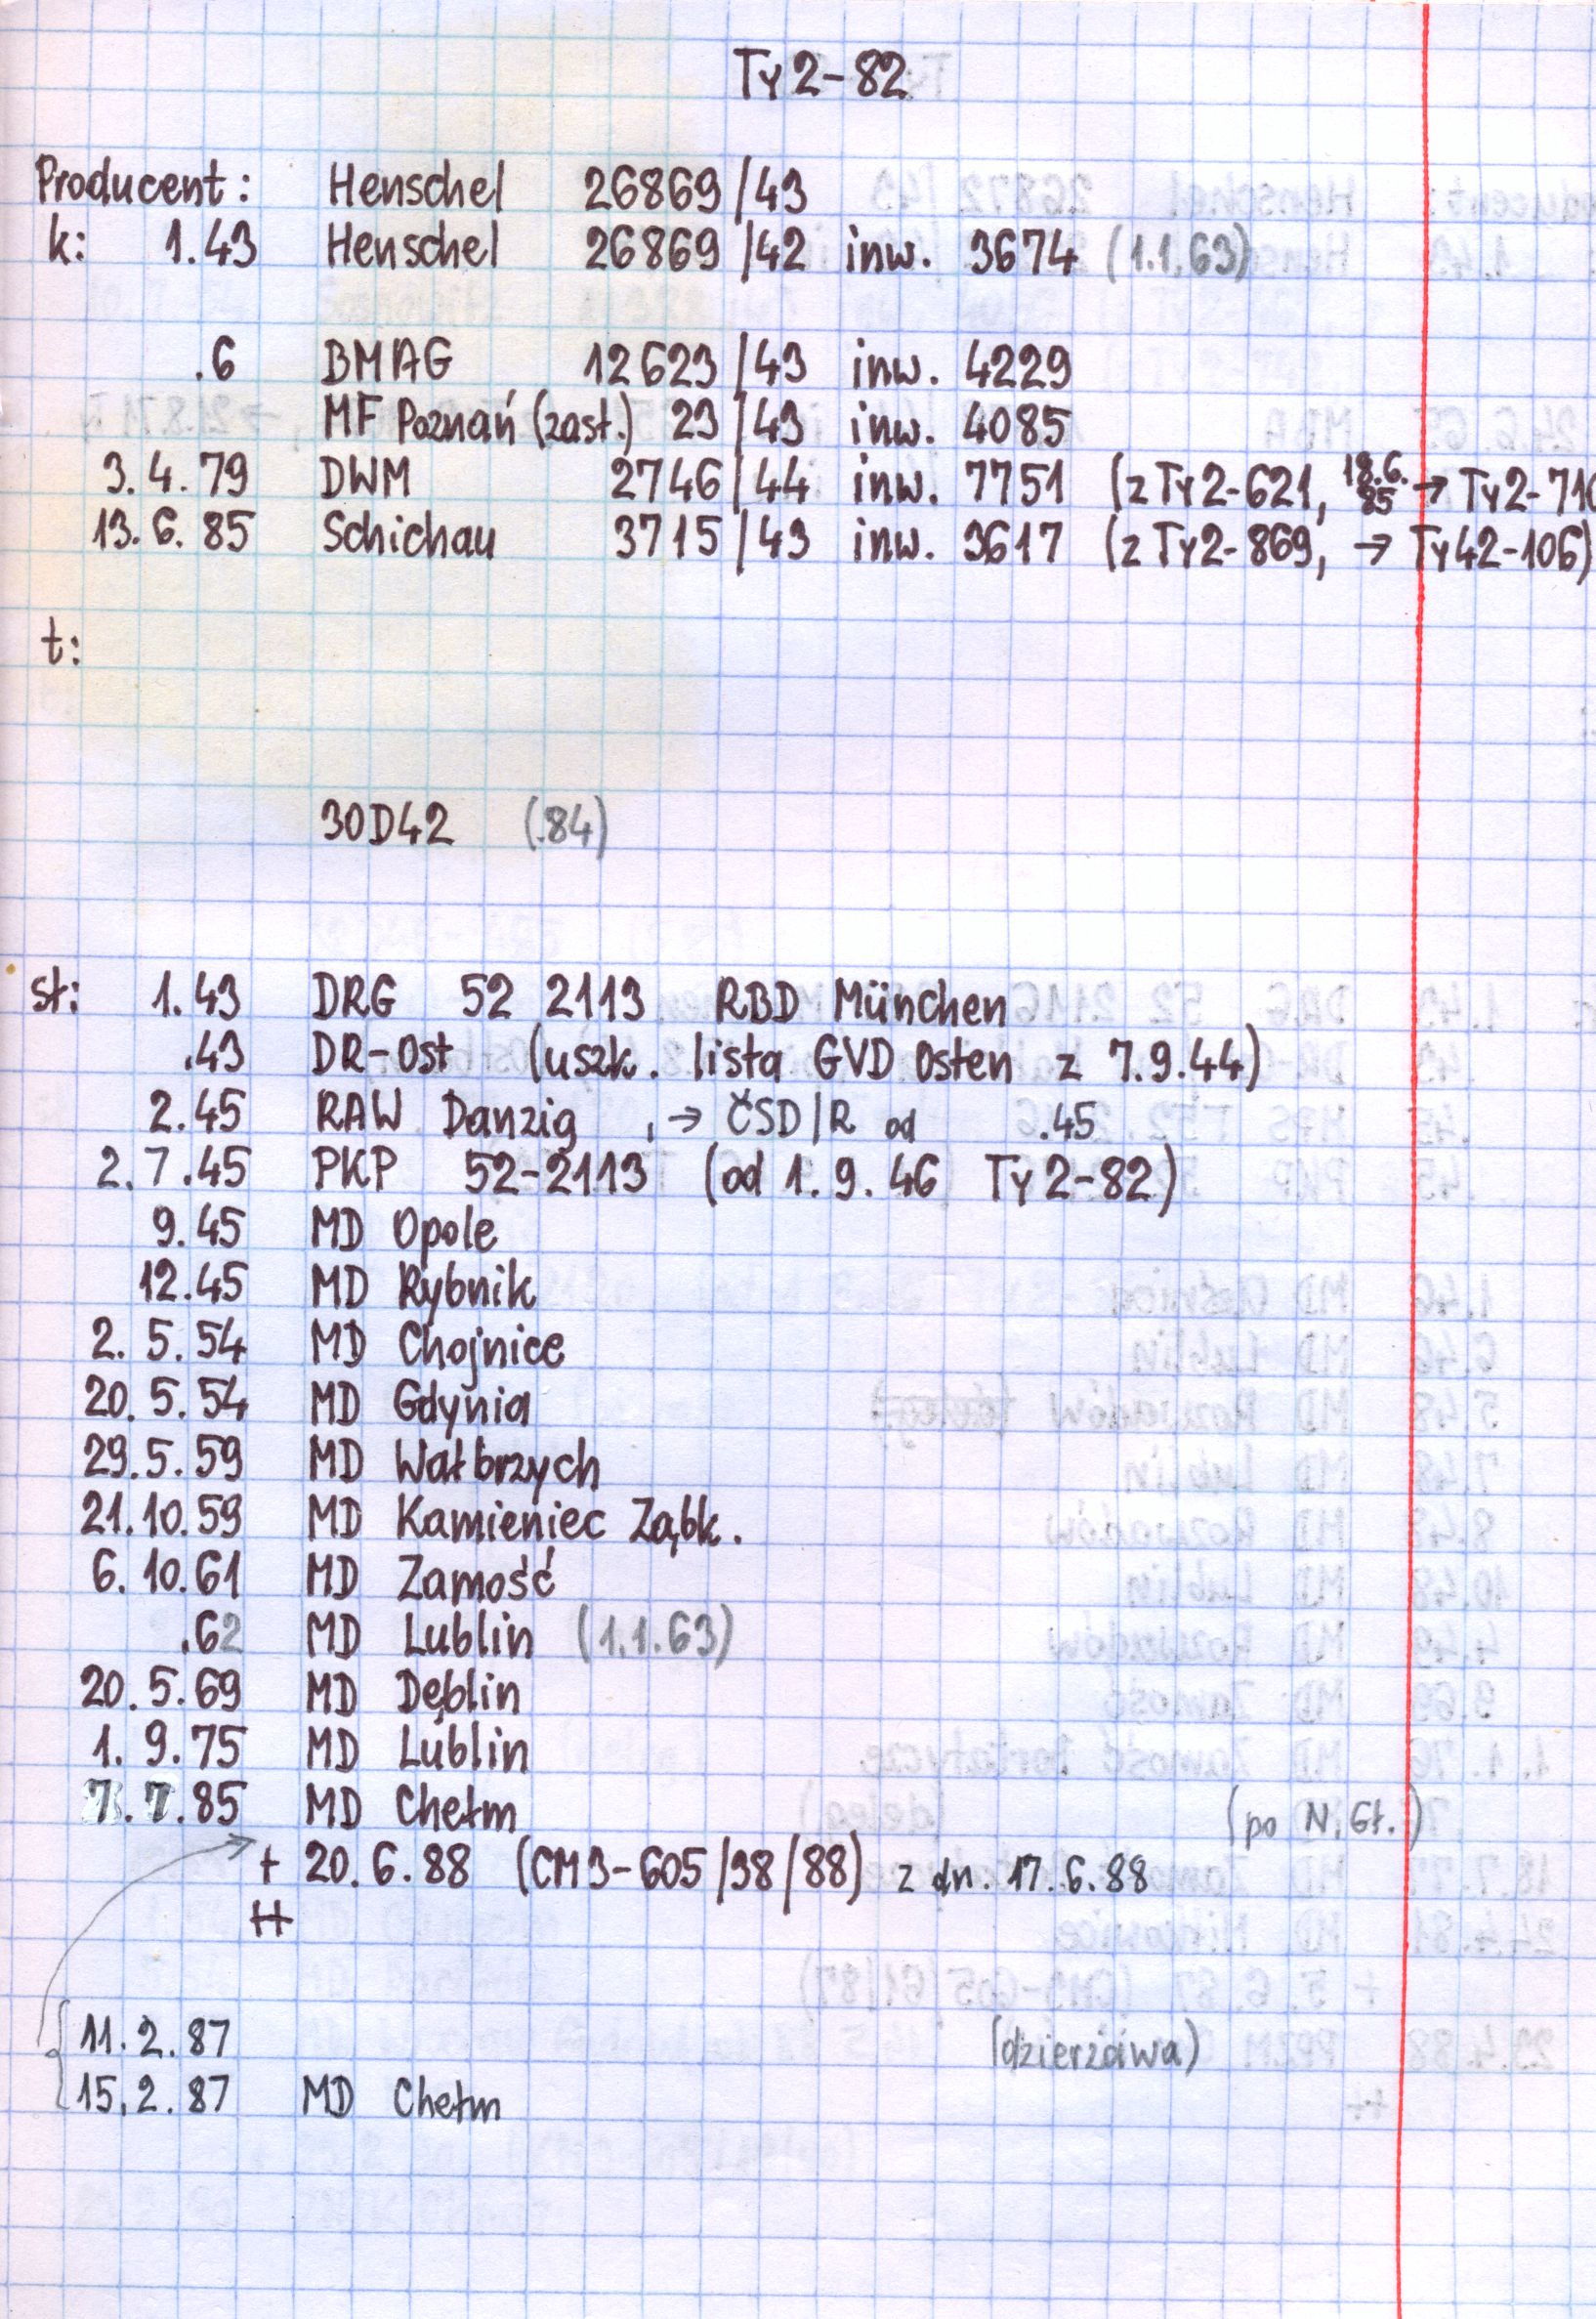 Ty2-82
Producent: Henschel 26869/43
k: 1.43 Henschel 26869/42 inw. 3674 (1.1.63)
.6 BMAG 12623/43 inw. 4229
MF Poznań (zast.) 23/43 inw. 4085
3.4.79 DWM 2746/44 inw. 7751 (z Ty2-621, 18.6.85 → Ty2-710
13.6.85 Schichau 3715/43 inw. 3617 (z Ty2-869, → Ty42-106)
t:
30D42 (.84)
st: 1.43 DRG 52 2113 RBD München
.43 DR-Ost (uszk. lista GVD Osten z 7.9.44)
2.45 RAW Danzig , → ČSD/R od .45
2.7.45 PKP 52-2113 (od 1.9.46 Ty2-82)
9.45 MD Opole
12.45 MD Rybnik
2.5.54 MD Chojnice
20.5.54 MD Gdynia
29.5.59 MD Wałbrzych
21.10.59 MD Kamieniec Ząbk.
6.10.61 MD Zamość
.62 MD Lublin (1.1.63)
20.5.69 MD Dęblin
1.9.75 MD Lublin
7.7.85 MD Chełm (po N.Gł.)
+ 20.6.88 (CM3-605/38/88) z dn. 17.6.88
++
11.2.87 (dzierżawa)
15.2.87 MD Chełm